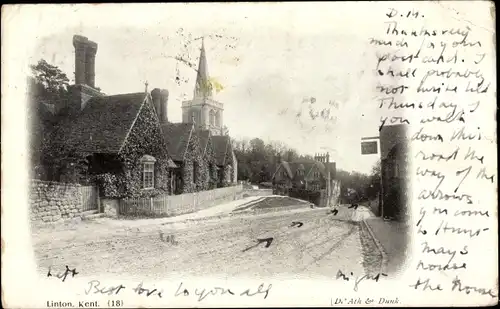 D. 14.
Thanks very
much for your
post card. I
shall probably
not write till
Thursday if
you walk
down this
road the
way of the
arrows
you come
to Hunt-
mays
house
the house
left
right
Best love to you all
Linton, Kent. (18)
De'Ath & Dunk.